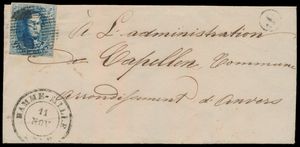 À L'administration
de Capellen, Commune
arrondissement d'Anvers
HAMME-MILLE
11
NOV